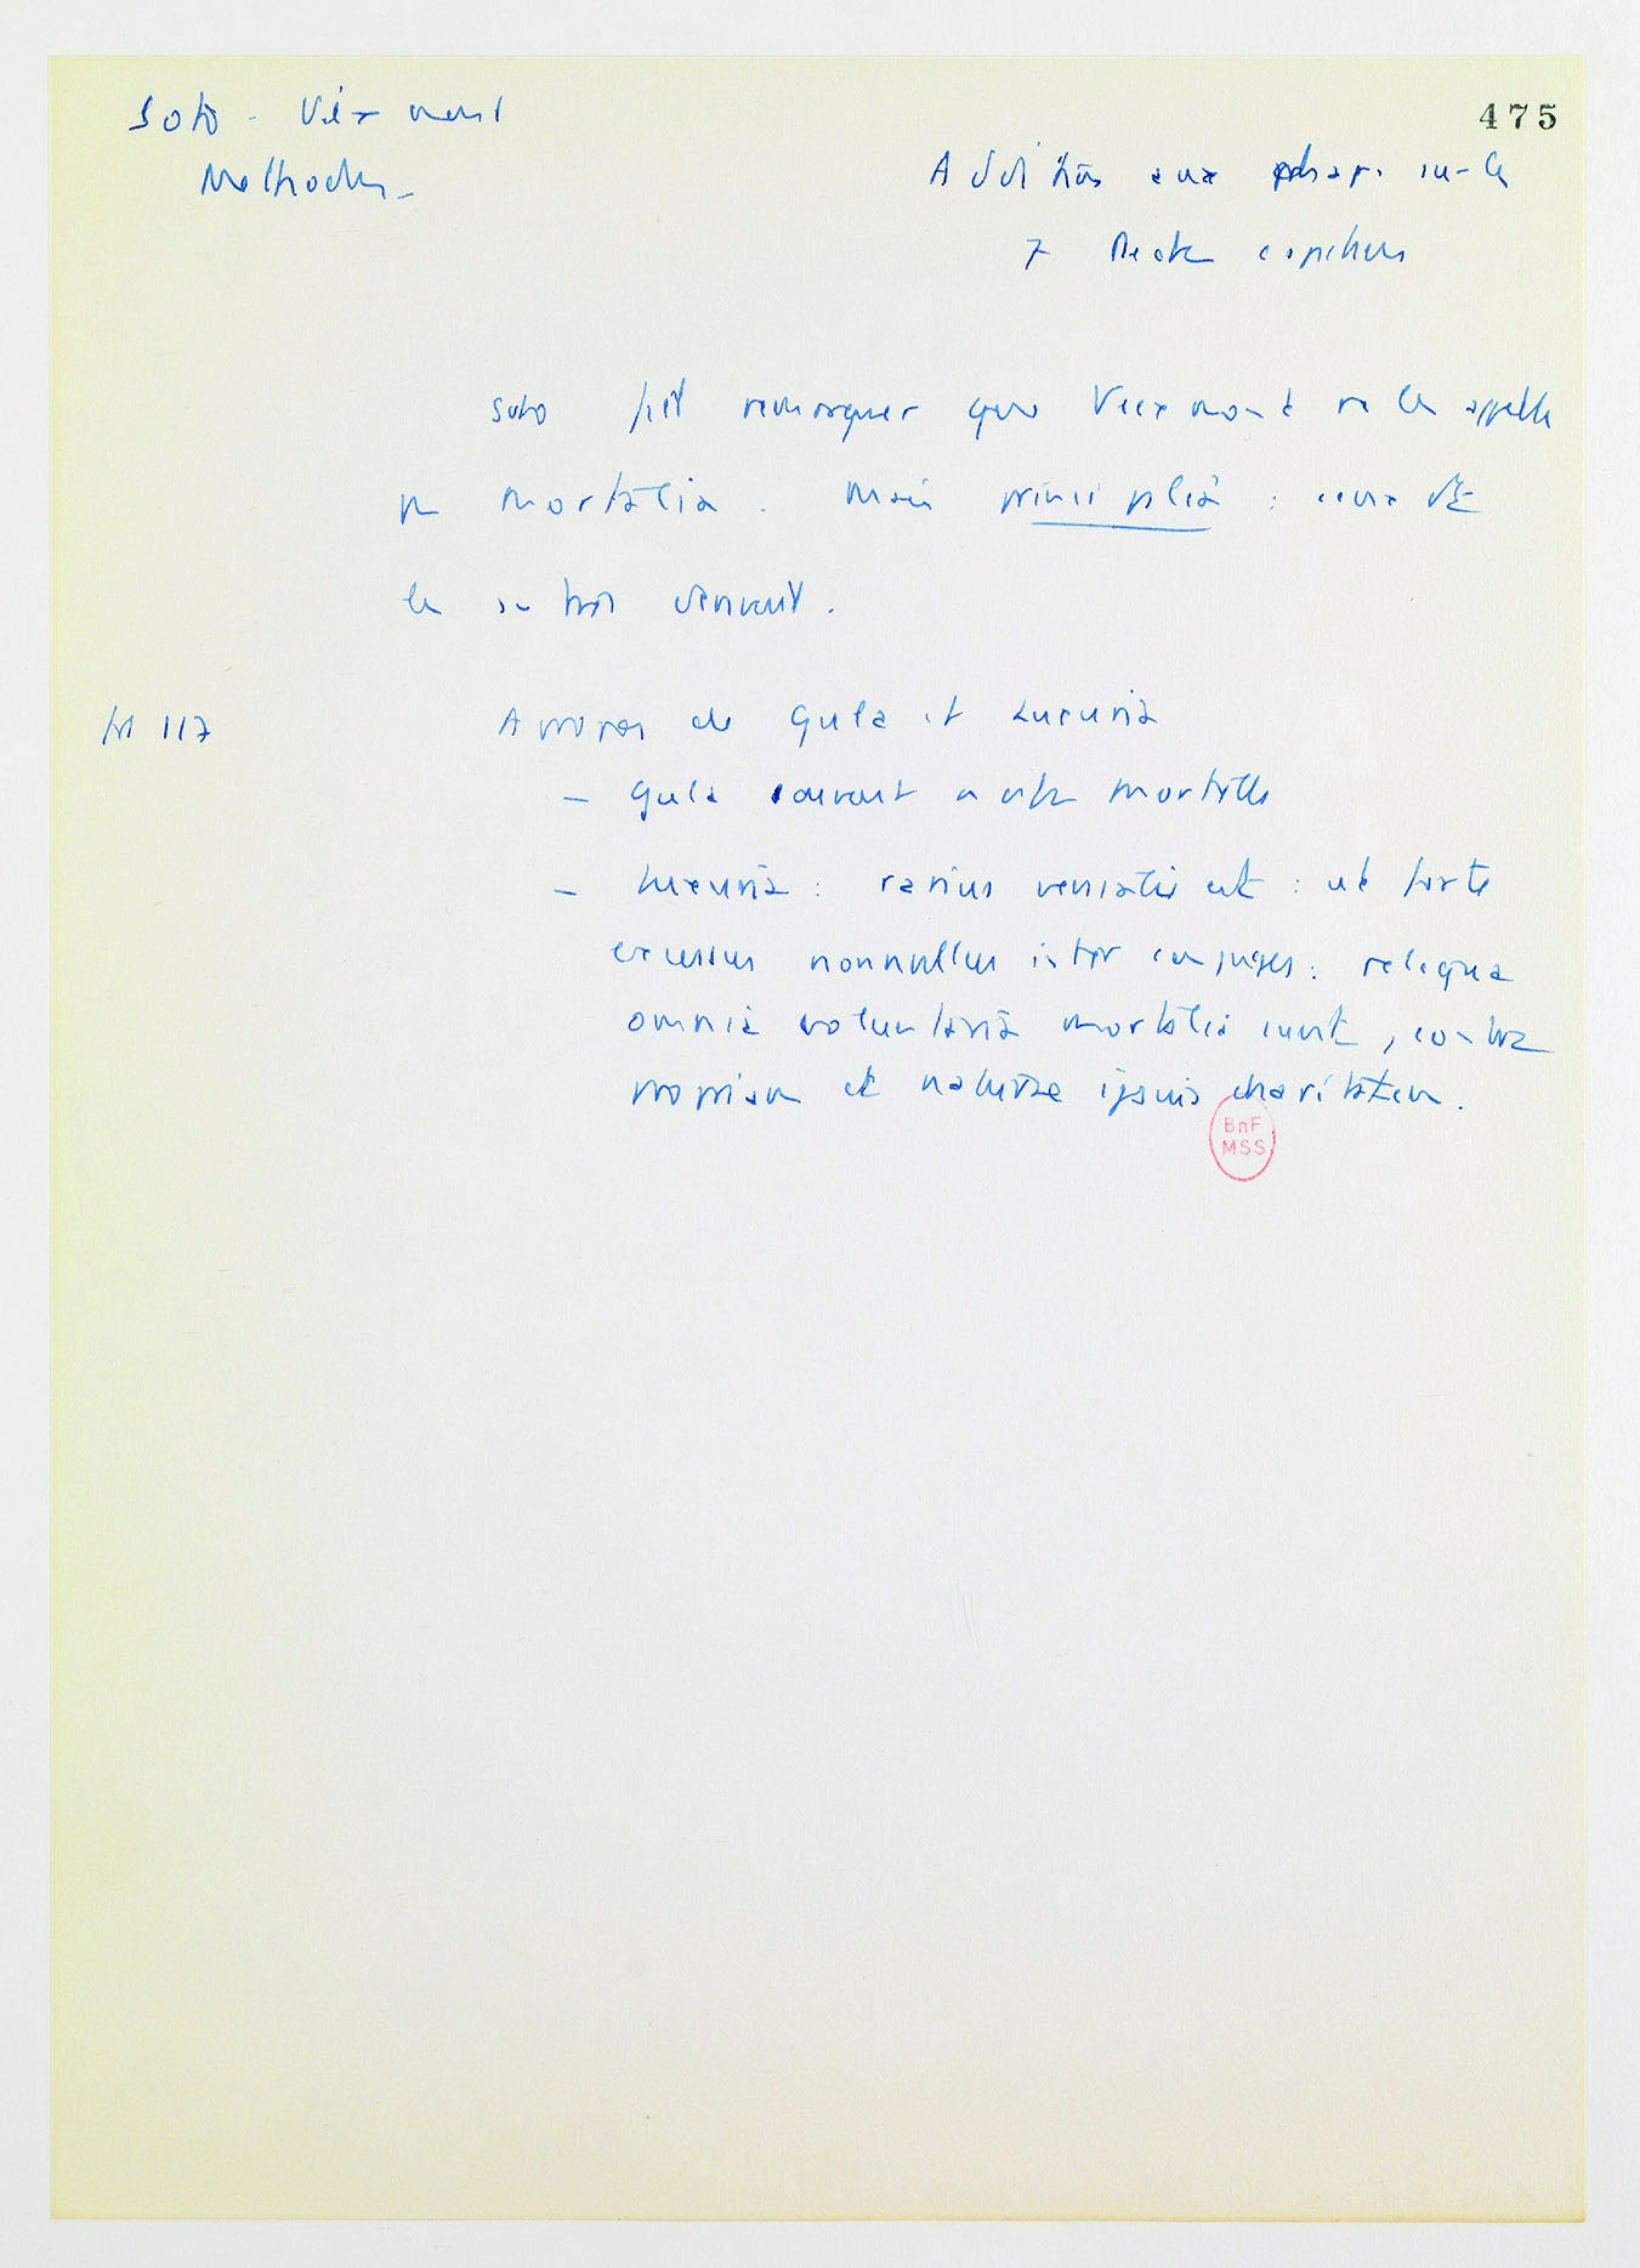 Soto - Viexmont
475
Methodus -
Additions aux chap. sur les
7 Péchés capitaux
Soto fait remarquer que Viexmont ne les appelle
pas mortalia. Mais principalia : ceux dt
les autres dérivent.
117
A propos de Gula et Luxuria
- Gula souvent mortelle
- Luxuria : rarius venialis est : ut forte
excessus nonnullus inter conjuges : reliqua
omnia voluntaria mortalia sunt, contra
propriam et naturae ipsius charitatem.
BnF
MSS